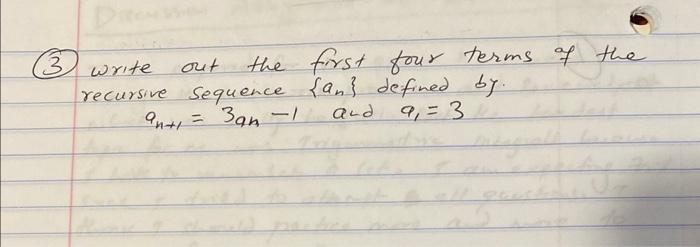 ③ write out the first four terms of the
recursive sequence {aₙ} defined by.
aₙ₊₁ = 3aₙ - 1 and a₁ = 3